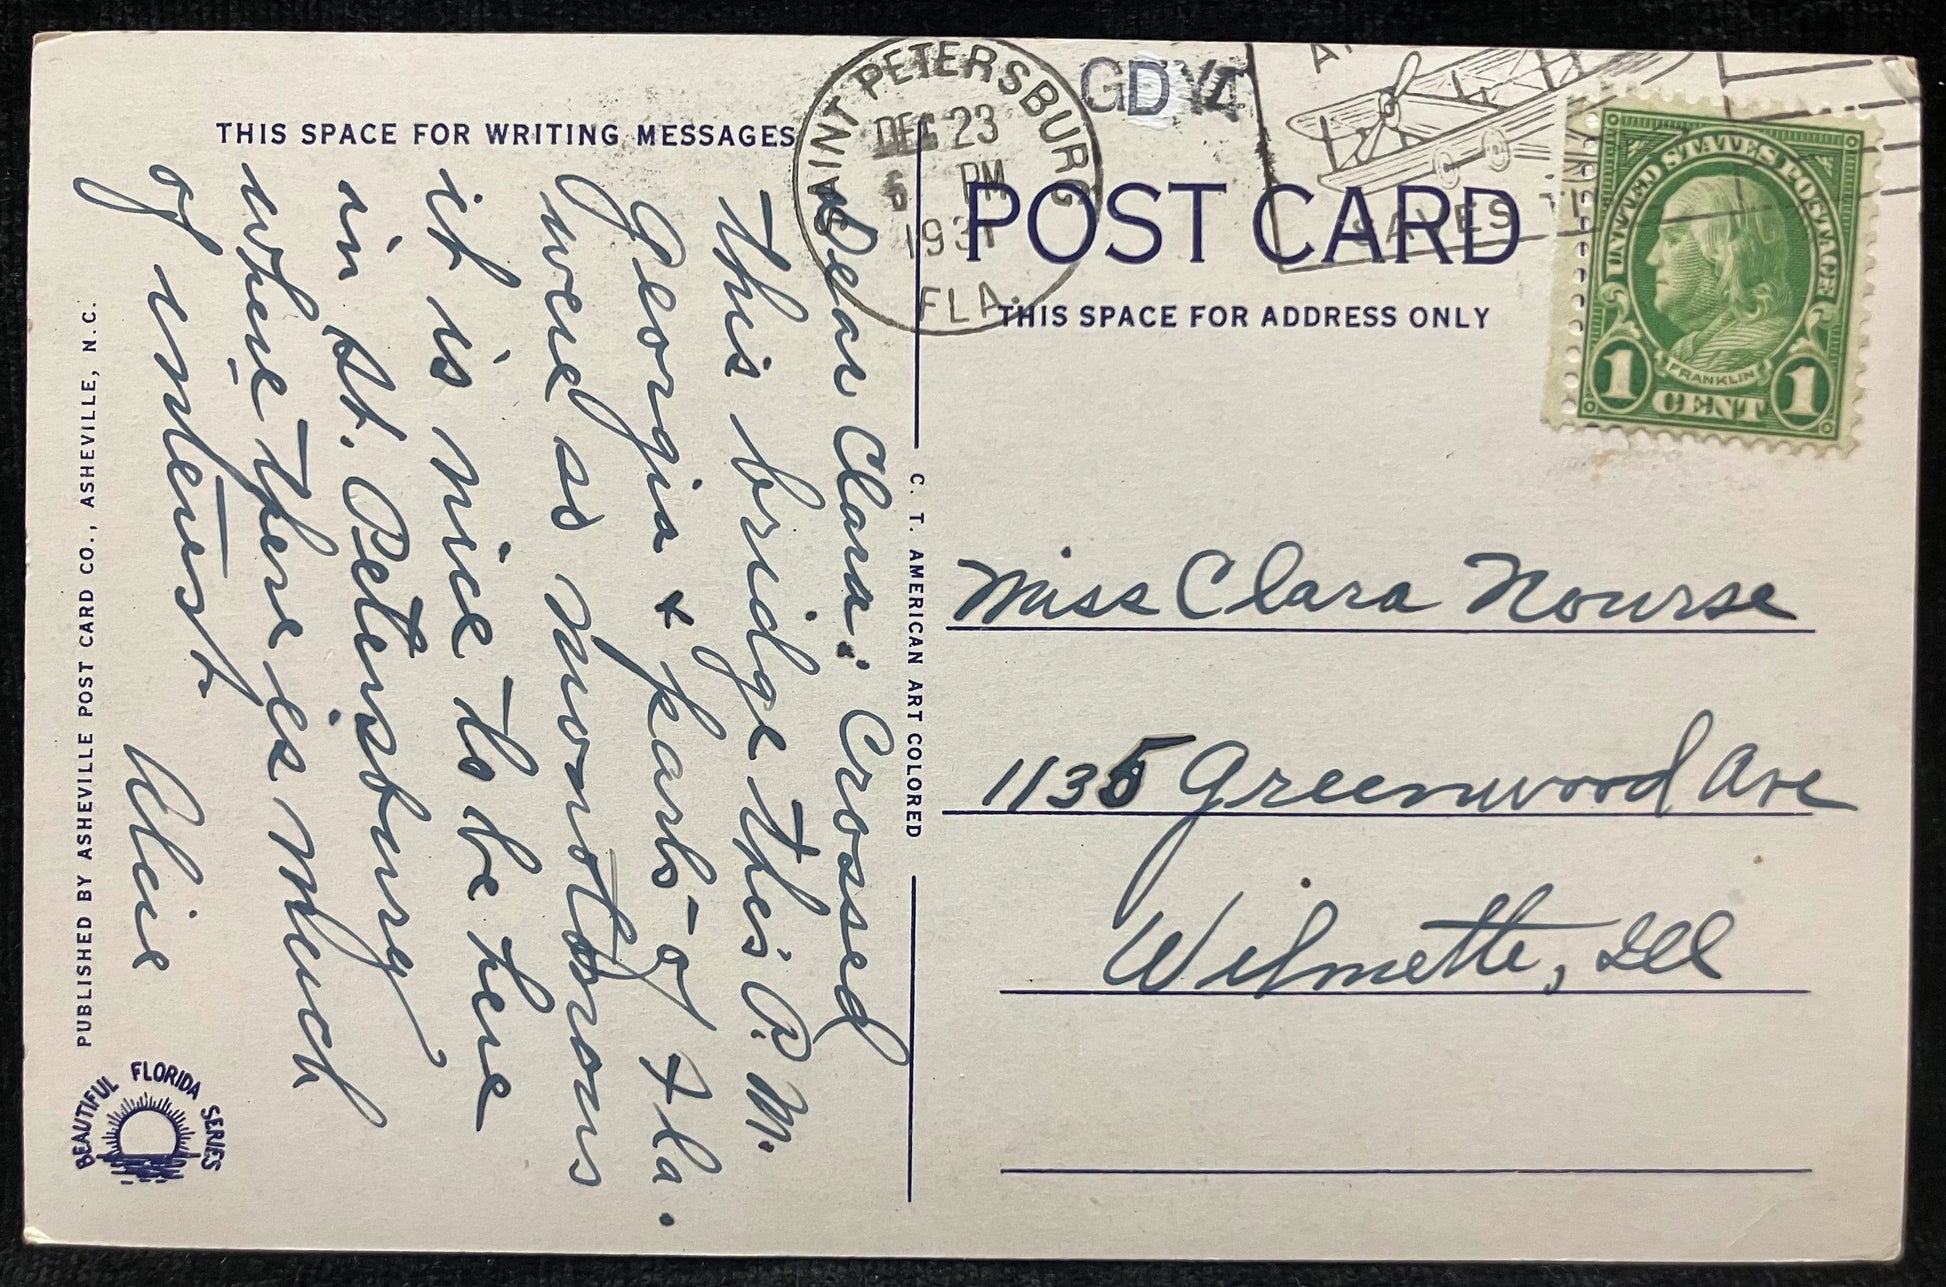 THIS SPACE FOR WRITING MESSAGES
Dear Clara: Crossed
this bridge this P. M.
Georgia & parts of Fla.
were so monotonous
it is nice to be here
in St. Petersburg
where there is much
of interest.
Alice
PUBLISHED BY ASHEVILLE POST CARD CO., ASHEVILLE, N. C.
BEAUTIFUL FLORIDA SERIES
C. T. AMERICAN ART COLORED
SAINT PETERSBURG
DEC 23
6 PM
1931
FLA.
GDY4
POST CARD
THIS SPACE FOR ADDRESS ONLY
UNITED STATES POSTAGE
FRANKLIN
1 CENT 1
Miss Clara Nourse
1135 Greenwood Ave
Wilmette, Ill